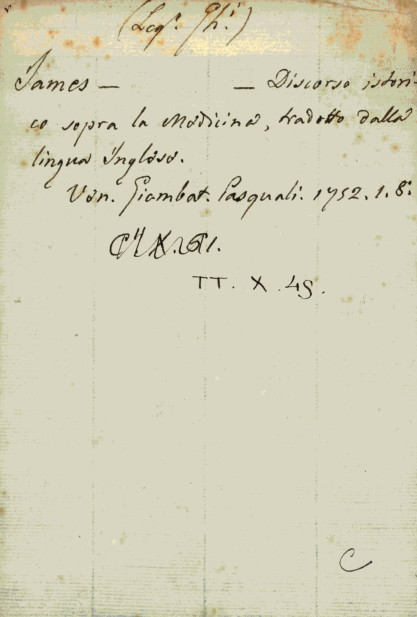 (Leg.r Gh.i)
James — — Discorso istori-
co sopra la Medicina, tradotto dalla
lingua Inglese.
Ven. Giambat. Pasquali. 1752. 1. 8.°
TT. X. 49.
C